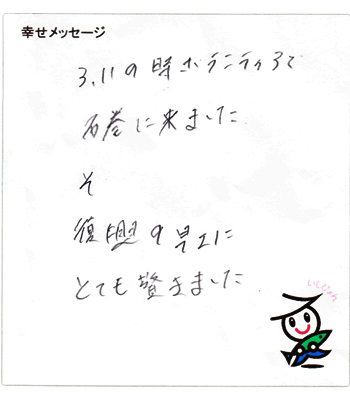 幸せメッセージ
3.11の時ボランティアで
石巻に来ました
そ
復興の早エに
とても驚きました
いしぴょん